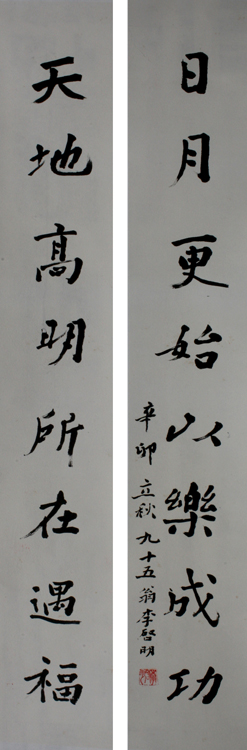 日月更始以樂成功
辛卯立秋九十五翁李啓明
天地高明所在遇福